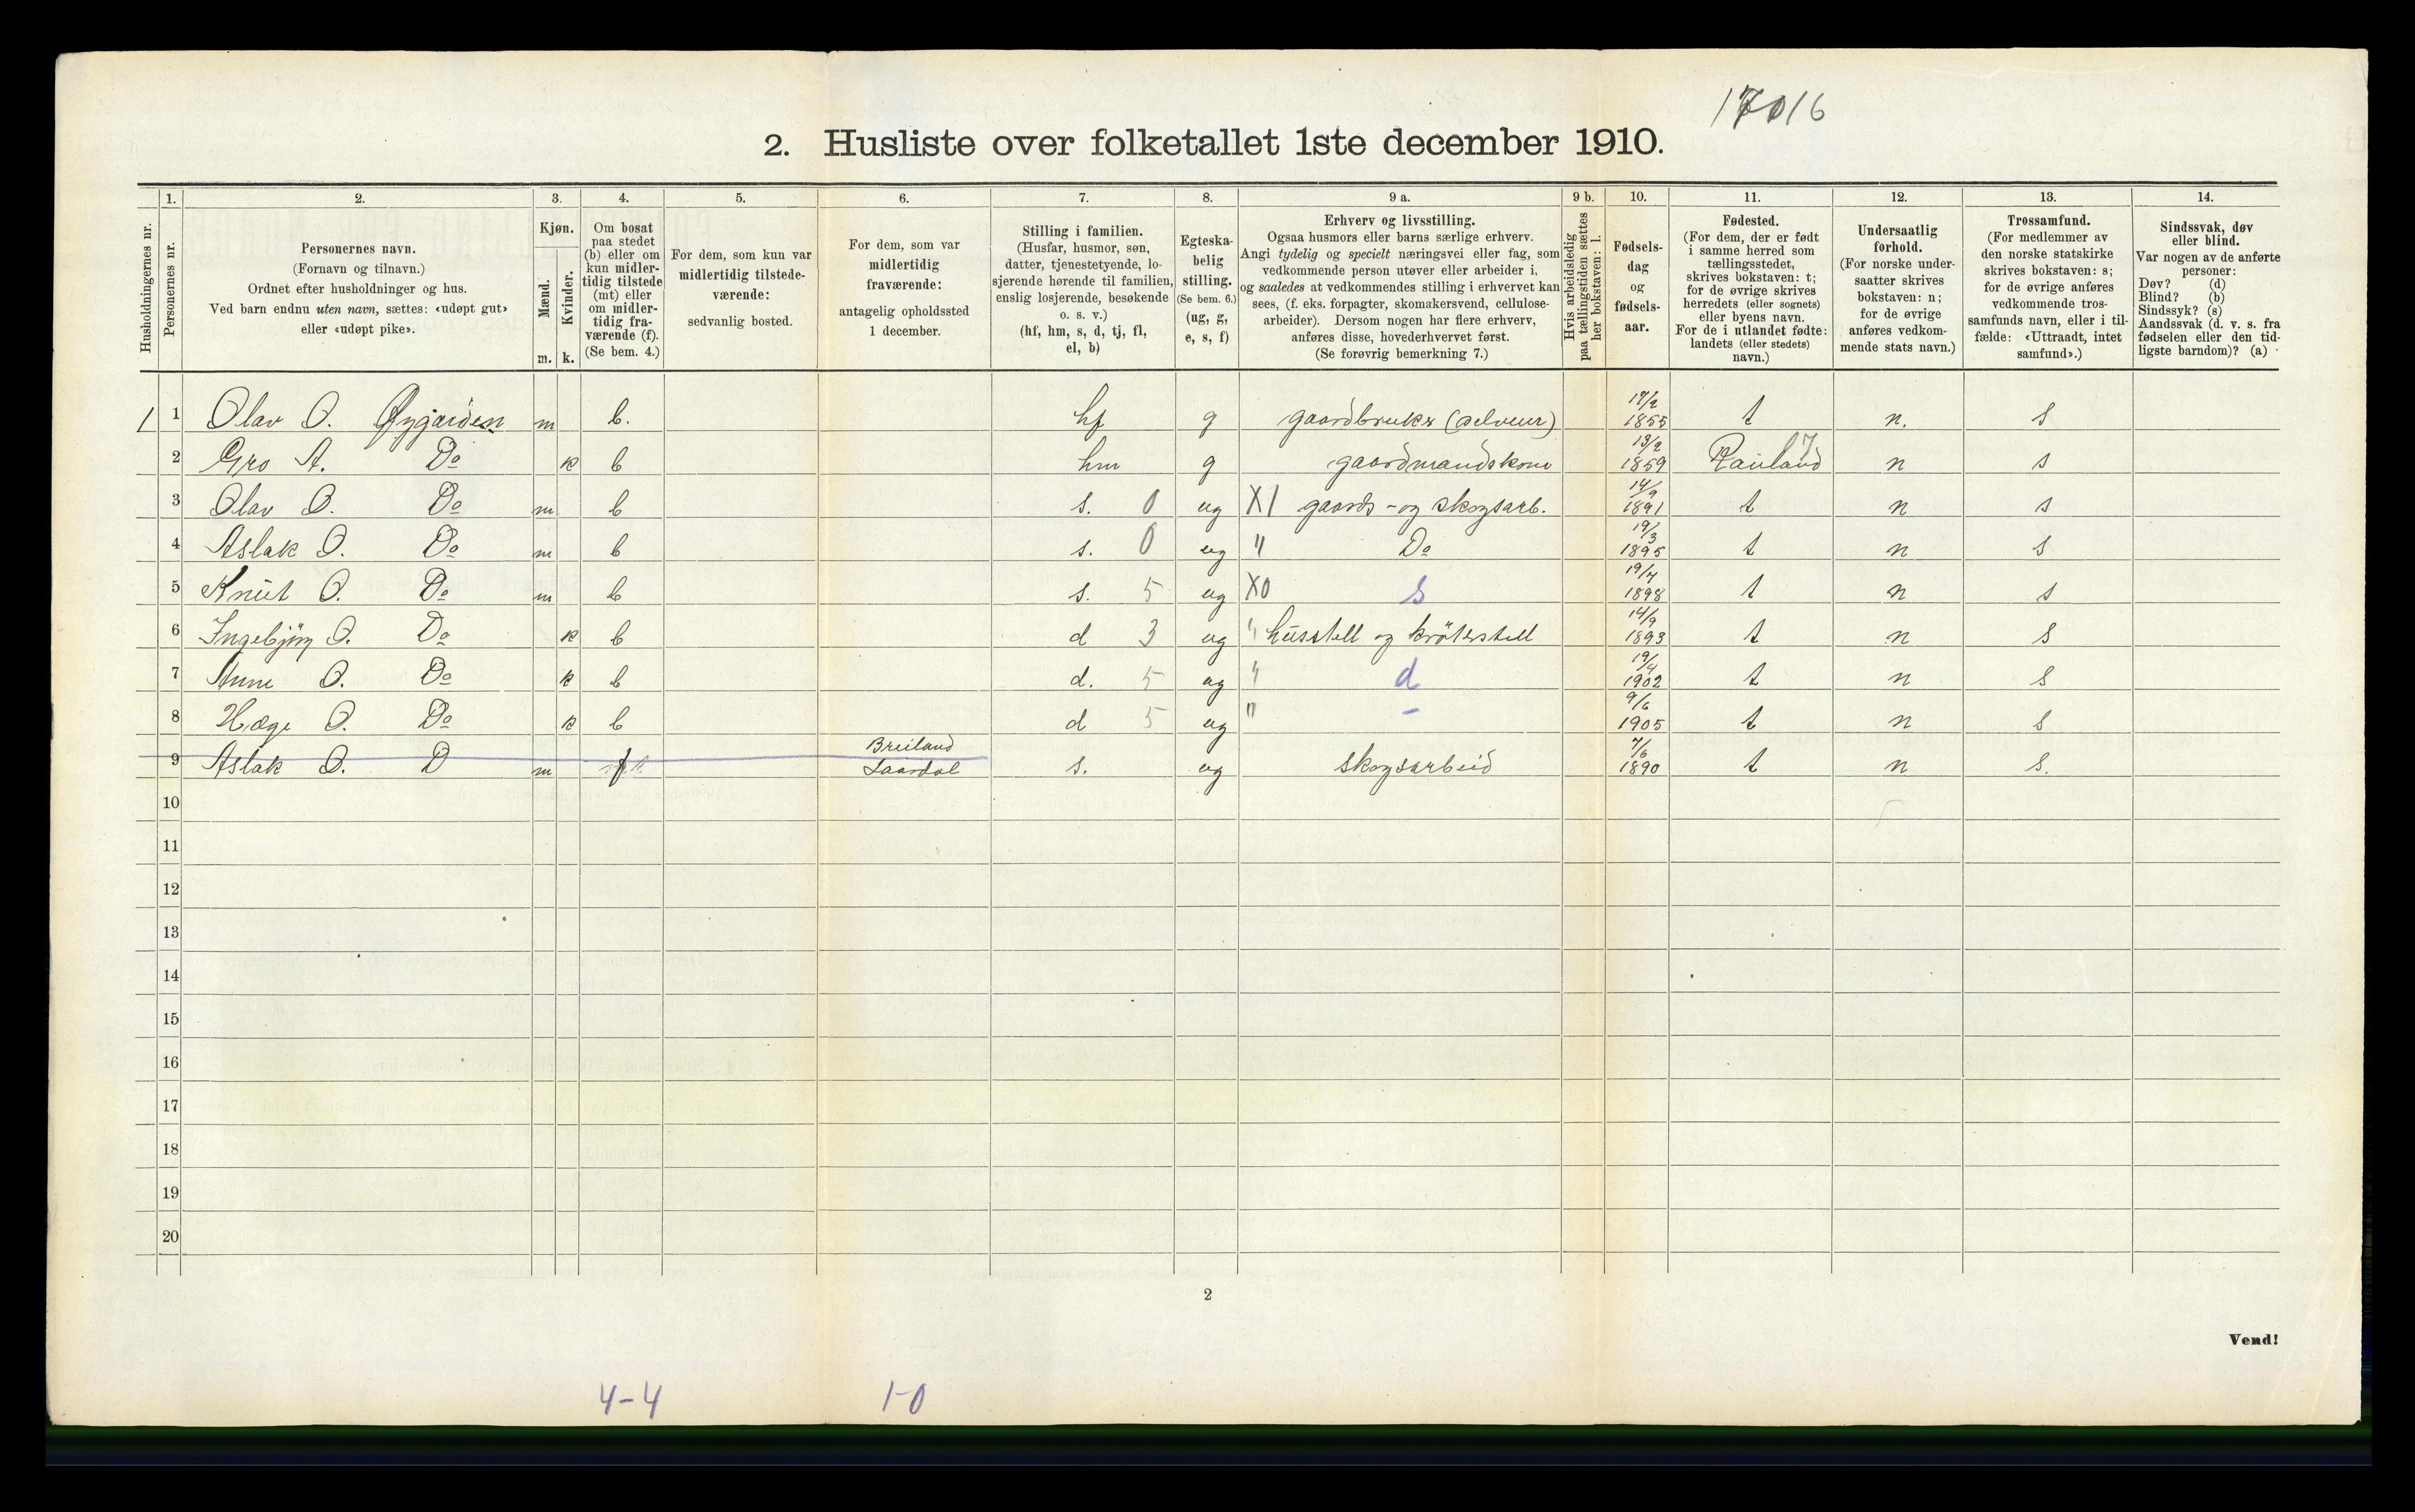 17016
2. Husliste over folketallet 1ste december 1910.
1. 2. 3. 4. 5. 6. 7. 8. 9 a. 9 b. 10. 11. 12. 13. 14.
Husholdningernes nr.
Personernes nr.
Personernes navn.
(Fornavn og tilnavn.)
Ordnet efter husholdninger og hus.
Ved barn endnu uten navn, sættes: «udøpt gut»
eller «udøpt pike».
Kjøn.
Mænd.
Kvinder.
m. k.
Om bosat
paa stedet
(b) eller om
kun midler-
tidig tilstede
(mt) eller
om midler-
tidig fra-
værende (f).
(Se bem. 4.)
For dem, som kun var
midlertidig tilstede-
værende:
sedvanlig bosted.
For dem, som var
midlertidig
fraværende:
antagelig opholdssted
1 december.
Stilling i familien.
(Husfar, husmor, søn,
datter, tjenestetyende, lo-
sjerende hørende til familien,
enslig losjerende, besøkende
o. s. v.)
(hf, hm, s, d, tj, fl,
el, b)
Egteska-
belig
stilling.
(Se bem. 6.)
(ug, g,
e, s, f)
Erhverv og livsstilling.
Ogsaa husmors eller barns særlige erhverv.
Angi tydelig og specielt næringsvei eller fag, som
vedkommende person utøver eller arbeider i,
og saaledes at vedkommendes stilling i erhvervet kan
sees, (f. eks. forpagter, skomakersvend, cellulose-
arbeider). Dersom nogen har flere erhverv,
anføres disse, hovederhvervet først.
(Se forøvrig bemerkning 7.)
Hvis arbeidsledig
paa tællingstiden sættes
her bokstaven: l.
Fødsels-
dag
og
fødsels-
aar.
Fødested.
(For dem, der er født
i samme herred som
tællingsstedet,
skrives bokstaven: t;
for de øvrige skrives
herredets (eller sognets)
eller byens navn.
For de i utlandet fødte:
landets (eller stedets)
navn.)
Undersaatlig
forhold.
(For norske under-
saatter skrives
bokstaven: n;
for de øvrige
anføres vedkom-
mende stats navn.)
Trossamfund.
(For medlemmer av
den norske statskirke
skrives bokstaven: s;
for de øvrige anføres
vedkommende tros-
samfunds navn, eller i til-
fælde: «Uttraadt, intet
samfund».)
Sindssvak, døv
eller blind.
Var nogen av de anførte
personer:
Døv? (d)
Blind? (b)
Sindssyk? (s)
Aandssvak (d. v. s. fra
fødselen eller den tid-
ligste barndom)? (a)
1 1 Olav O. Øygarden m b. hf g gaardbruker (selveier) 17/2 1855 t n. s
2 Gro A. Do k b hm g gaardmandskone 13/2 1859 Rauland 7 n s
3 Olav O. Do m b s. 0 ug X1 gaards- og skogsarb. 14/9 1891 t n s
4 Aslak O. Do m b s. 0 ug " Do 19/3 1895 t n s
5 Knut O. Do m b s. 5 ug X0 s 19/4 1898 t n s
6 Ingebjörg O. Do k b d 3 ug " husstell og krøterstell 14/9 1893 t n s
7 Anne O. Do k b d. 5 ug " d 19/4 1902 t n s
8 Hæge O. Do k b d 5 ug " – 9/6 1905 t n s
9 Aslak O. D m f Breiland Laardal s. ug skogsarbeid 7/6 1890 t n s.
10
11
12
13
14
15
16
17
18
19
20
2
Vend!
4-4 1-0